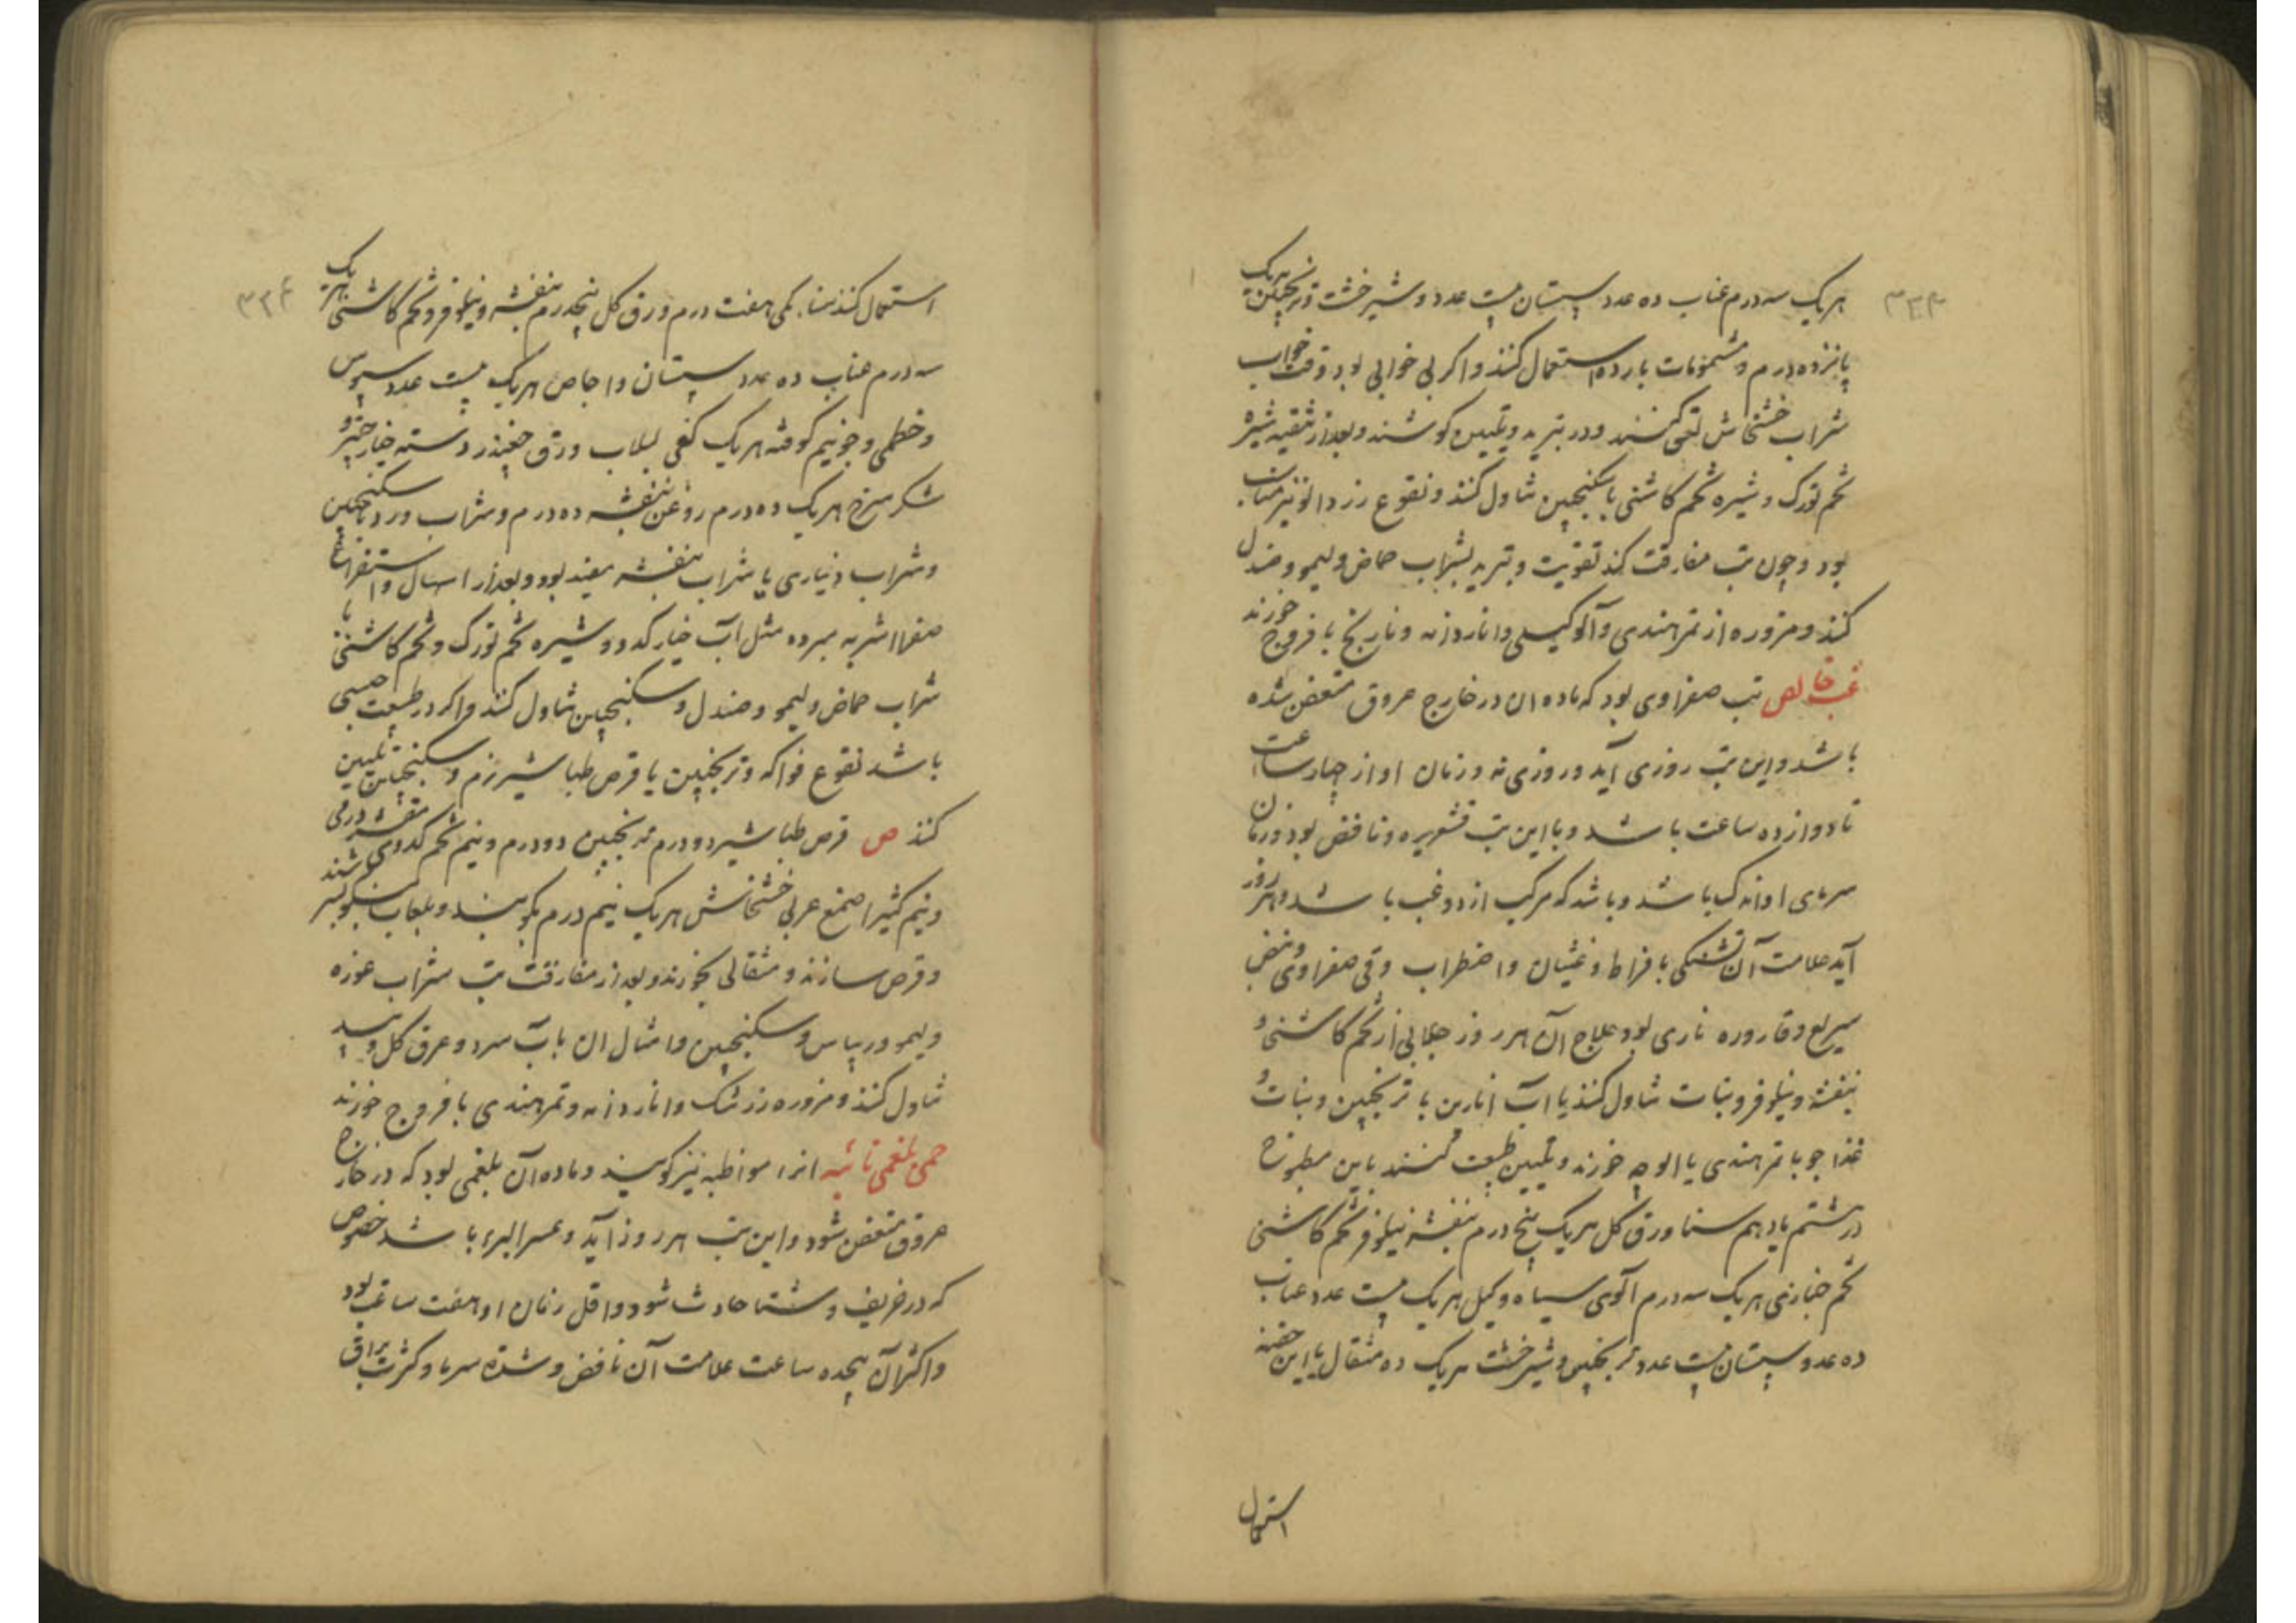 هریک سه درم عناب ده عدد سپستان بیست عدد و شیرخشت و ترنجبین هریک
پانزده درم و مشمومات بارده استعمال کنند و اکر بی خوابی بود وقت خواب
شراب خشخاش لعق کنند و در تبرید و تلیین کوشند و بعد از تنقیه شیره
تخم تورک و شیره تخم کاشنی با سکنجبین تناول کنند و نقوع زردالو نیز مناسب
بود و چون تب مفارقت کند تقویت و تبرید بشراب حماض و لیمو و صندل
کنند و مزوره از تمرهندی و آلو کیلی و اناردانه و نارنج با فروج خورند
غب خالص تب صفراوی بود که ماده ان در خارج عروق متعفن شده
باشد و این تب روزی آید و روزی نه و زمان او از چهار ساعت
تا دوازده ساعت باشد و با این تب قشعریره و نافض بود و زمان
سرمای او اندک باشد و باشد که مرکب از دو غب باشد و هر روز
آید علامت آن تشنکی بافراط و غثیان و اضطراب و قی صفراوی و نبض
سریع و قاروره ناری بود علاج آن هر روز جلابی از تخم کاشنی و
بنفشه و نیلوفر و نبات تناول کنند یا آب انارین با ترنجبین و نبات و
غذا جو با تمرهندی یا الوچه خورند و تلیین طبیعت کنند باین مطبوخ
در هشتم یا دهم سنا ورق کل هریک پنج درم بنفشه نیلوفر تخم کاشنی
تخم خبازی هریک سه درم آلوی سیاه و کیل هریک بیست عدد عناب
ده عدد سپستان بیست عدد ترنجبین و شیرخشت هریک ده مثقال یا این حقنه
استعمال
۳۳۴
استعمال کنند سناء مکی هفت درم ورق کل پنجدرم بنفشه و نیلوفر و تخم کاشنی هریک
سه درم عناب ده عدد سپستان و اجاص هریک بیست عدد سبوس
و خطمی و جو نیم کوفته هریک کفی لبلاب ورق چغندر دسته خیارچنبر و
شکر سرخ هریک ده درم روغن بنفشه ده درم و شراب ورد با سکنجبین
و شراب دیناری یا شراب بنفشه مفید بود و بعد از اسهال و استفراغ
صفرا اشربه مبرده مثل آب خیار کدو و شیره تخم تورک و تخم کاشنی با
شراب حماض و لیمو و صندل و سکنجبین تناول کنند و اکر در طبیعت حبسی
باشد نقوع فواکه و ترنجبین یا قرص طباشیر نرم و سکنجبین تلیین
کنند ص قرص طباشیر دو درم ترنجبین دو درم و نیم تخم کدوی مقشر درمی
و نیم کثیرا صمغ عربی خشخاش هریک نیم درم بکوبند و بلعاب اسبغول بسرشند
و قرص سازند و مثقالی بخورند و بعد از مفارقت تب شراب غوره
و لیمو و ریباس و سکنجبین و امثال ان باب سرد و عرق کل و بید
تناول کنند و مزوره زرشک و اناردانه و تمرهندی با فروج خورند
حمی بلغمی نائبه انرا مواظبه نیز کویند و ماده آن بلغمی بود که در خارج
عروق متعفن شود و این تب هر روز آید و عسر البرء باشد خصوص
که در خریف و شتا حادث شود و اقل زمان او هفت ساعت بود
و اکثر آن هیجده ساعت علامت آن نافض و شدة سرما و کثرت بزاق